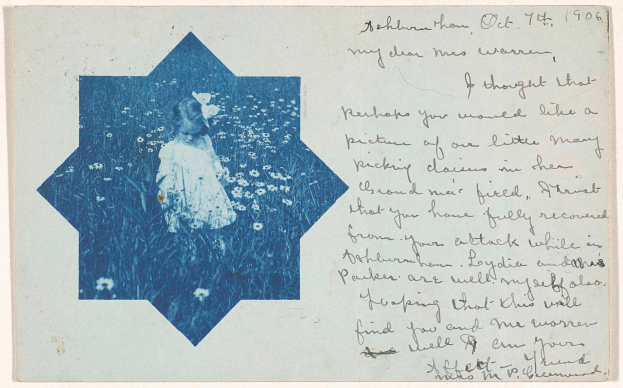 Ashburnham, Oct 7th, 1906
My dear Mrs Warren,
I thought that
perhaps you would like a
picture of our little Mary
picking daisies in her
Grand ma's field, I trust
that you have fully recovered
from your attack while in
Ashburnham. Lydia and Mrs
Parker are well, myself also.
Hoping that this will
find you and Mr Warren
well I am yours
Affect Friend
Mrs M. P. Greenwood.